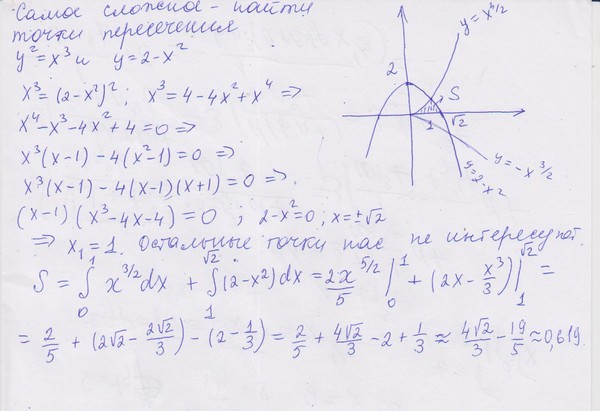 Самое сложное - найти
точки пересечения
y² = x³ и y = 2 - x²
x³ = (2 - x²)² ; x³ = 4 - 4x² + x⁴ ⇒
x⁴ - x³ - 4x² + 4 = 0 ⇒
x³(x - 1) - 4(x² - 1) = 0 ⇒
x³(x - 1) - 4(x - 1)(x + 1) = 0 ⇒
(x - 1)(x³ - 4x - 4) = 0 ; 2 - x² = 0 ; x = ±√2
⇒ x₁ = 1. Остальные точки нас не интересуют.
S = ∫₀¹ x^{3/2} dx + ∫₁^{√2} (2 - x²) dx = 2x^{5/2}/5 |₀¹ + (2x - x³/3)|₁^{√2} =
= 2/5 + (2√2 - 2√2/3) - (2 - 1/3) = 2/5 + 4√2/3 - 2 + 1/3 ≈ 4√2/3 - 19/5 ≈ 0,619.
y = x^{3/2}
2
S
1
√2
y = -x^{3/2}
y = 2 - x²